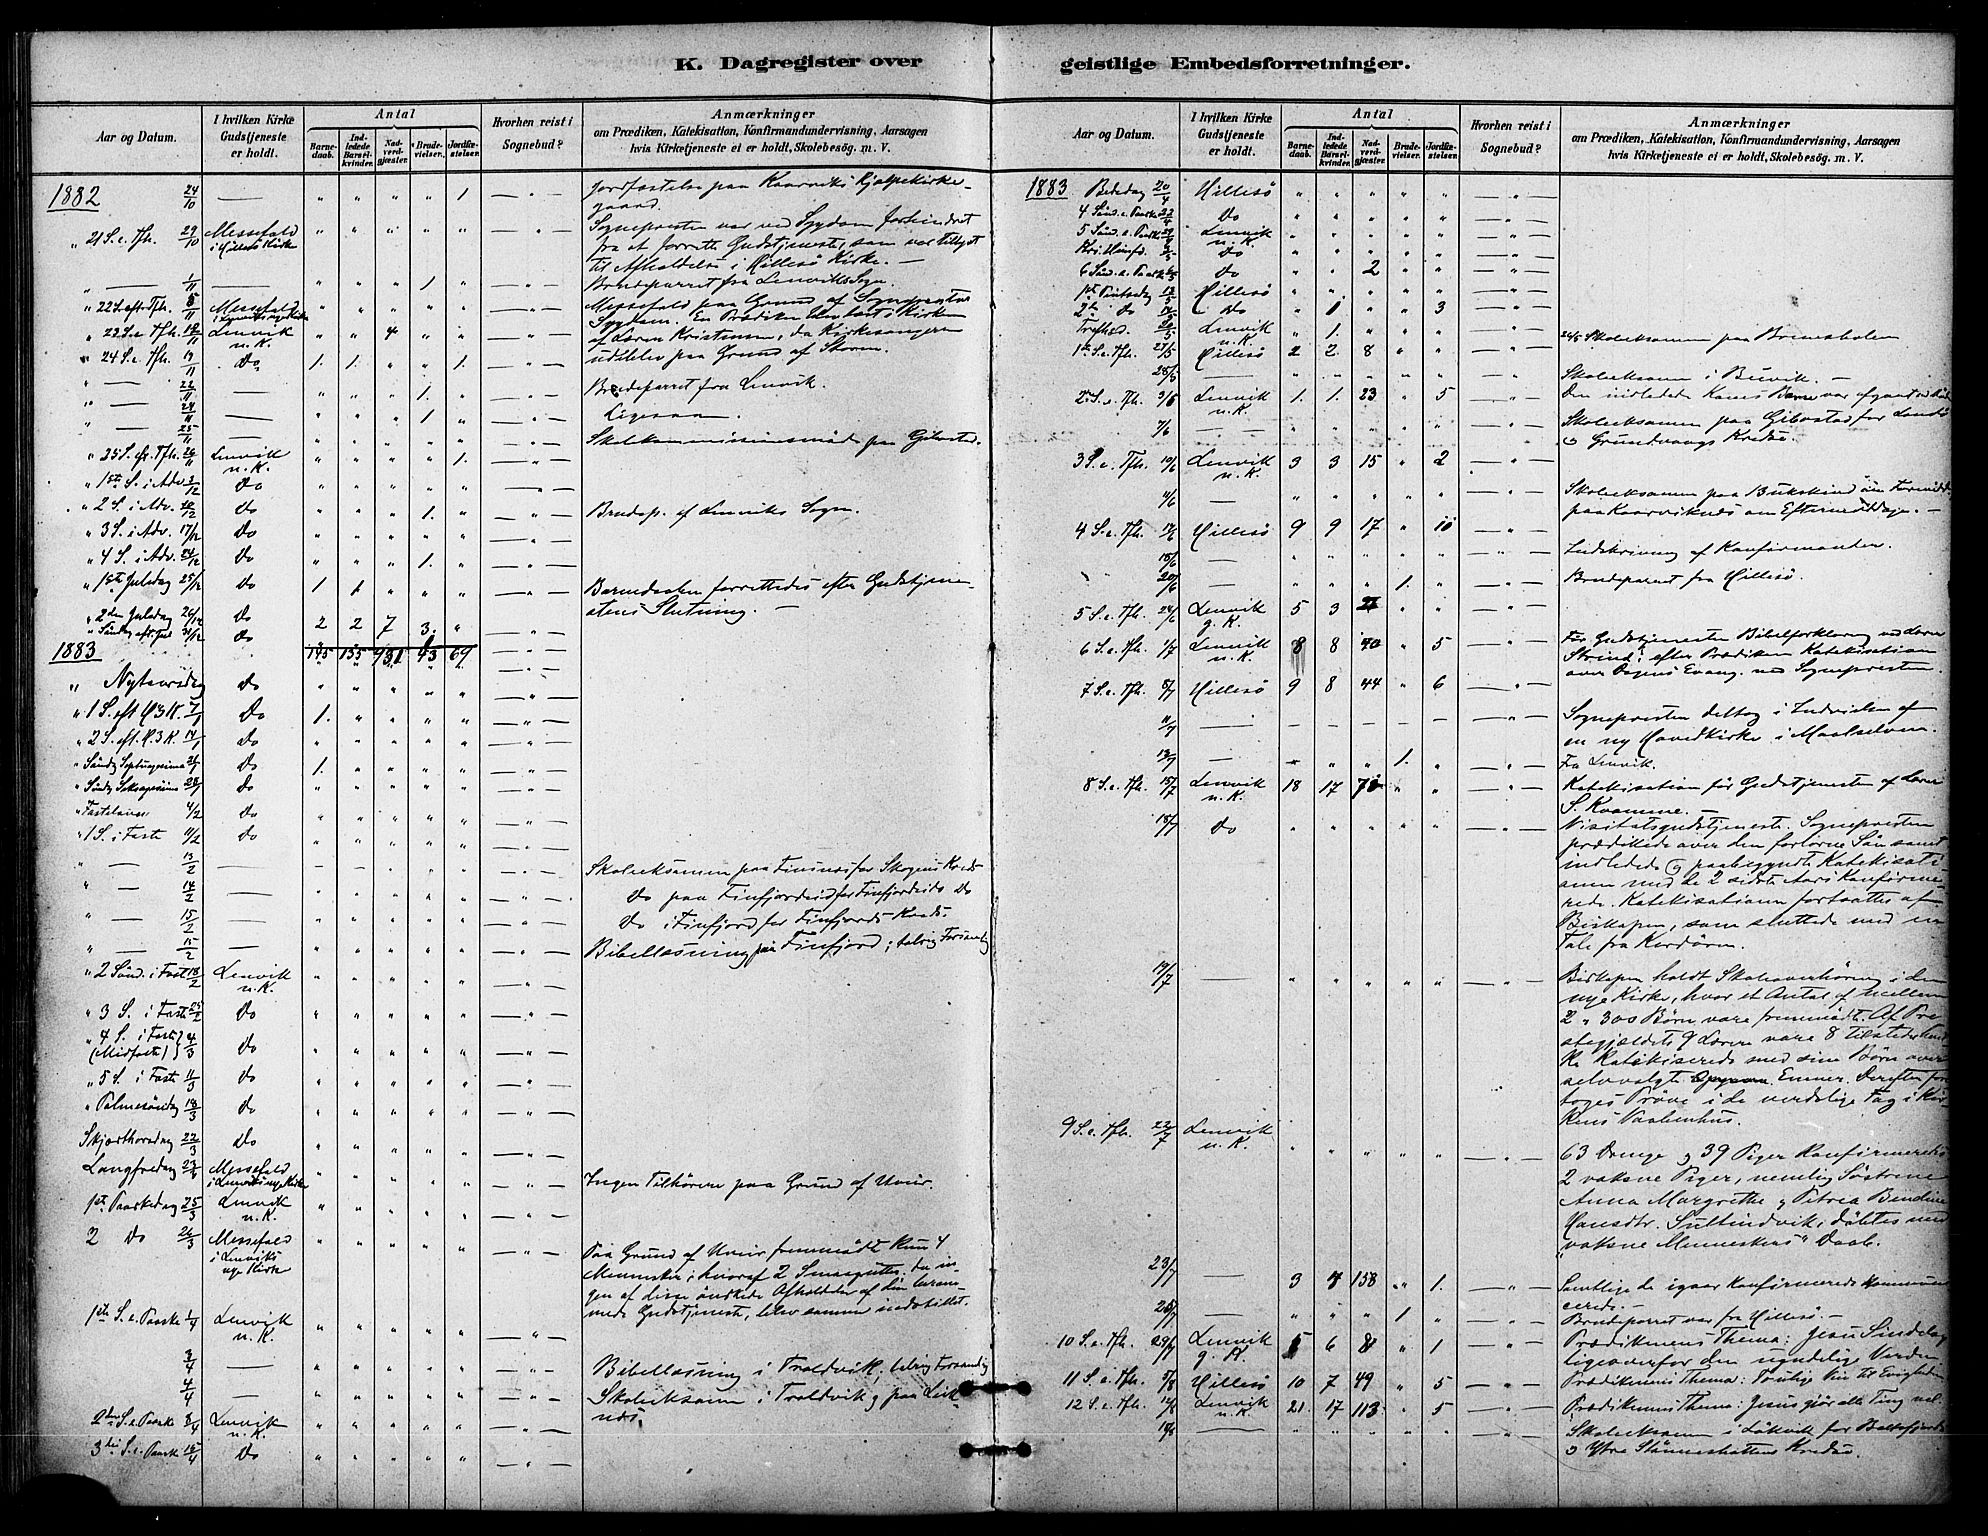 K. Dagregister over
Aar og Datum.
I hvilken Kirke Gudstjeneste er holdt.
Antal
Barnedaab.
Indledede Barselkvinder.
Nadverdgjæster.
Brudevielser.
Jordfæstelser.
Hvorhen reist i Sognebud?
Anmærkninger
om Prædiken, Katekisation, Konfirmandundervisning, Aarsagen
hvis Kirketjeneste ei er holdt, Skolebesög. m. V.
1882 24/10 — " " " " 1. — " — Jordfæstelse paa Kaarviks Hjælpekirke-
gaard.
" 21 S. e. Tfh. 29/10 Messefald " " " " " — " — Sognepresten var ved Sygdom forhindret
i Hillesö Kirke fra at forrette Gudstjeneste, som var tillyst
til Afholdelse i Hillesö Kirke. —
" — 1/11 — " " " 1 " — " — Brudeparret fra Lenviks Sogn.
" 22 S. eft. Tfh. 5/11 Messefald " " " " " — " — Messefald paa Grund af Sogneprestens
i Lenviks nye Kirke Sygdom. En Prædiken blev læst i Kirken
" 23 S. e. Tfh. 12/11 Lenvik n. K. " " 4 " " — " — af Lærer Kristensen, da Kirkesangeren
" 24 S. e. Tfh. 19/11 Do 1. 1. " " 1. — " — udeblev paa Grund af Storm.
" — 22/11 — " " " 1. " — " — Brudeparret fra Lenvik.
" — 24/11 — " " " 1 " — " — Ligesaa.
" — 25/11 — " " " " " — " — Skolekommissionsmöde paa Gibostad.
" 25 S. ef. Tfh. 26/11 Lenvik n. K. " " " " 1. — " —
" 1ste S. i Adv 3/12 Do " " " " " — " —
" 2 S. i Adv. 10/12 Do " " " 1. " — " — Brudep. af Lenviks Sogn.
" 3 S. i Adv. 17/12 Do " " " " " — " —
" 4 S. i Adv. 24/12 Do " " " 1. " — " —
" 1ste Juledag 25/12 Do 1 1 " " " — " — Barnedaaben forrettedes efter Gudstjene-
stens Slutning. —
" 2den Juledag 26/12 Do 2 2 7 3. " — " —
" Söndag eft. Jul 31/12 Do
1883 195 155 931 43 69 — " —
" Nytaarsdag Do " " " " " — " —
" 1 S. eft H3K. 7/1 Do 1. " " " " — " —
" 2 S. eft. H.3 K. 14/1 Do " " " " " — " —
" Söndag Septuagesima 21/1 Do 1. " " " " — " —
" Söndag Seksagesima 28/1 Do " " " " " — " —
" Fastelavn 4/2 Do " " " " " — " —
" 1 S. i Faste 11/2 Do " " " " " — " —
" — 13/2 — — — — " " — " — Skoleeksamen paa Finsnes for Skogens Kreds
" — 14/2 — " " " " " — " — Do paa Finfjordeid for Finfjordeids Do
" — 15/2 — " " " " " — " — Do i Finfjord for Finfjords Kreds.
" — 15/2 — " " " " " — " — Bibellæsning paa Finfjord; talrig Forsamlg
" 2 Sönd. i Fast 18/2 Lenvik n. K. " " " " " — " —
" 3 S. i Faste 25/2 Do " " " " " — " —
" 4 S. i Faste (Midfaste) 4/3 Do " " " " " — " —
" 5 S. i Faste 11/3 Do " " " " " — " —
" Palmesöndag 18/3 Do " " " " " — " —
Skjærthorsdag 22/3 Do " " " " " — " —
Langfredag 23/3 Messefald i Lenviks nye Kirke " " " " " — " — Ingen Tilhörere paa Grund af Uveir.
1ste Paaskedag 25/3 Lenvik n. K. " " " " " — " —
2 Do 26/3 Messefald " " " " " — " — Paa Grund af Uveir fremmödt kun 4
i Lenviks Mennesker, hvoraf 2 Smaagutter; da in-
nye Kirke gen af disse önskede Afholdelse af den beram-
mede Gudstjeneste, blev samme indstillet.
1ste S. e. Paaske 1/4 Lenvik n. K. " " " " " — " —
3/4 — " " " " " — " — Bibellæsning i Troldvik; talrig Forsamlg
4/4 — " " " " " — " — Skoleeksamen i Troldvik og paa Leik-
næs.
2den S. e. Paaske 8/4 Lenvik n. K. " " " " " — " —
3die S. e. Paaske 15/4 Do " " " " " — " —
geistlige Embedsforretninger.
Aar og Datum.
I hvilken Kirke Gudstjeneste er holdt.
Antal
Barnedaab.
Indledede Barselkvinder.
Nadverdgjæster.
Brudevielser.
Jordfæstelser.
Hvorhen reist i Sognebud?
Anmærkninger
om Prædiken, Katekisation, Konfirmandundervisning, Aarsagen
hvis Kirketjeneste ei er holdt, Skolebesög. m. V.
1883 Bededag 20/4 Hillesö " " " " " — " —
4 Sönd. e. Paaske 22/4 Do " " " " " — " —
5 Sönd. e. Paaske 29/4 Lenvik n. K. " " " " " — " —
Kri. Himfd. 3/5 Do " " " " " — " —
6 Sönd. e. Paaske 6/5 Do " " 2 " " — " —
1ste Pintsedag 13/5 Hillesö " " " " " — " —
2den Do 14/5 Do " 1 " " 3 — " —
Trefhed. 20/5 Lenvik n. K. " 1. " " " — " — 24/5 Skoleeksamen paa
1ste S. e. Tfh. 27/5 Hillesö 2 2. 8 " " — " —
28/5 — " " " " " " Skoleeksamen i Buvik. —
2den S. e. Tfh. 3/6 Lenvik n. K. 1. 1. 23 " 5 — " — Den indledede Kones Barn var
7/6 — " " " " " — " — Skoleeksamen paa Gibostad for
og Grundvaags Kredse.
3 S. e. Tfh. 10/6 Lenvik n. K. 3 3 15 " 2 — " —
11/6 — " " " " " — " — Skoleeksamen paa Bukskind om Formidd.
paa Kaarviknes om Eftermiddagen. —
4 S. e. Tfh. 17/6 Hillesö 9 9 17 " 10 — " —
18/6 — " " " " " — " — Indskrivning af Konfirmanter.
20/6 — " " " 1. " — " — Brudeparret fra Hillesö.
5 S. e. Tfh. 24/6 Lenvik g. K. 5 3 " " — " —
6 S. e. Tfh. 1/7 Lenvik n. K. 8 8 40 " 5 — " — För Gudstjenesten Bibelforklaring ved Lærer
Strind; efter Prædiken Katekisation
over Dagens Evang. ved Sognepresten.
7 S. e. Tfh. 8/7 Hillesö 9 8 44 " 6 — " —
11/7 — — — — — — — " — Sognepresten deltog i Indvielsen af
en ny Hovedkirke i Maalselven.
13/7 — " " " 1. " — " — Fra Lenvik.
8 S. e. Tfh. 15/7 Lenvik n. K. 18 17 70 " " — " — Katekisation för Gudstjenesten af Lærer
S. Kvamme. —
18/7 Do " " " " " — " — Visitatsgudstjeneste. Sognepresten
prædikede over den forlorne Sön samt
indledede og paabegyndte Katekisati-
onen med de 2 sidste Aars Konfirme-
rede. Katekisationen fortsattes af
Biskopen, som sluttede med en
Tale fra Kordören.
19/7 — " " " " " — " — Biskopen holdt Skoleoverhöring i den
nye Kirke, hvor et Antal af mellem
2 à 300 Börn vare fremmödt. Af Pre-
stegjældets 9 Lærere vare 8 tilstede,
katekiserede med sine Börn over
selvvalgte Emner. Derefter for-
toges Pröve i de verdslige Fag i Kir-
kens Vaabenhus.
9 S. e. Tfh. 22/7 Lenvik n. K. " " " " " — " — 63 Drenge og 39 Piger konfirmerede.
2 voksne Piger, nemlig Söstrene
Anna Margrethe og Petrea Bendine
Hansdtr. Sultindvik, döbtes med
"voksne Menneskers" Daab.
23/7 — 3 4 158 " 1. — " — Samtlige de igaar Konfirmerede kommuni-
cerede. —
25/7 — " " " 1 " — " — Brudeparret var fra Hillesö. —
10 S. e. Tfh. 29/7 Lenvik g. K. 5 6 8 " 1 — " — Prædikenens Thema: Jesu Sindelag
ligeoverfor den ugudelige Verden
11 S. e. Tfh. 5/8 Hillesö 10 7 49 " 5 — " — Prædikenens Thema:
12 S. e. Tfh. 12/8 Lenvik n. K. 21. 17 113. " 5 — " — Prædikenens Thema: Jesus gjör alle Ting vel.
14/8 — " " " " " — " — Skoleeksamen i Lökvik for
og Ytre Kreds.